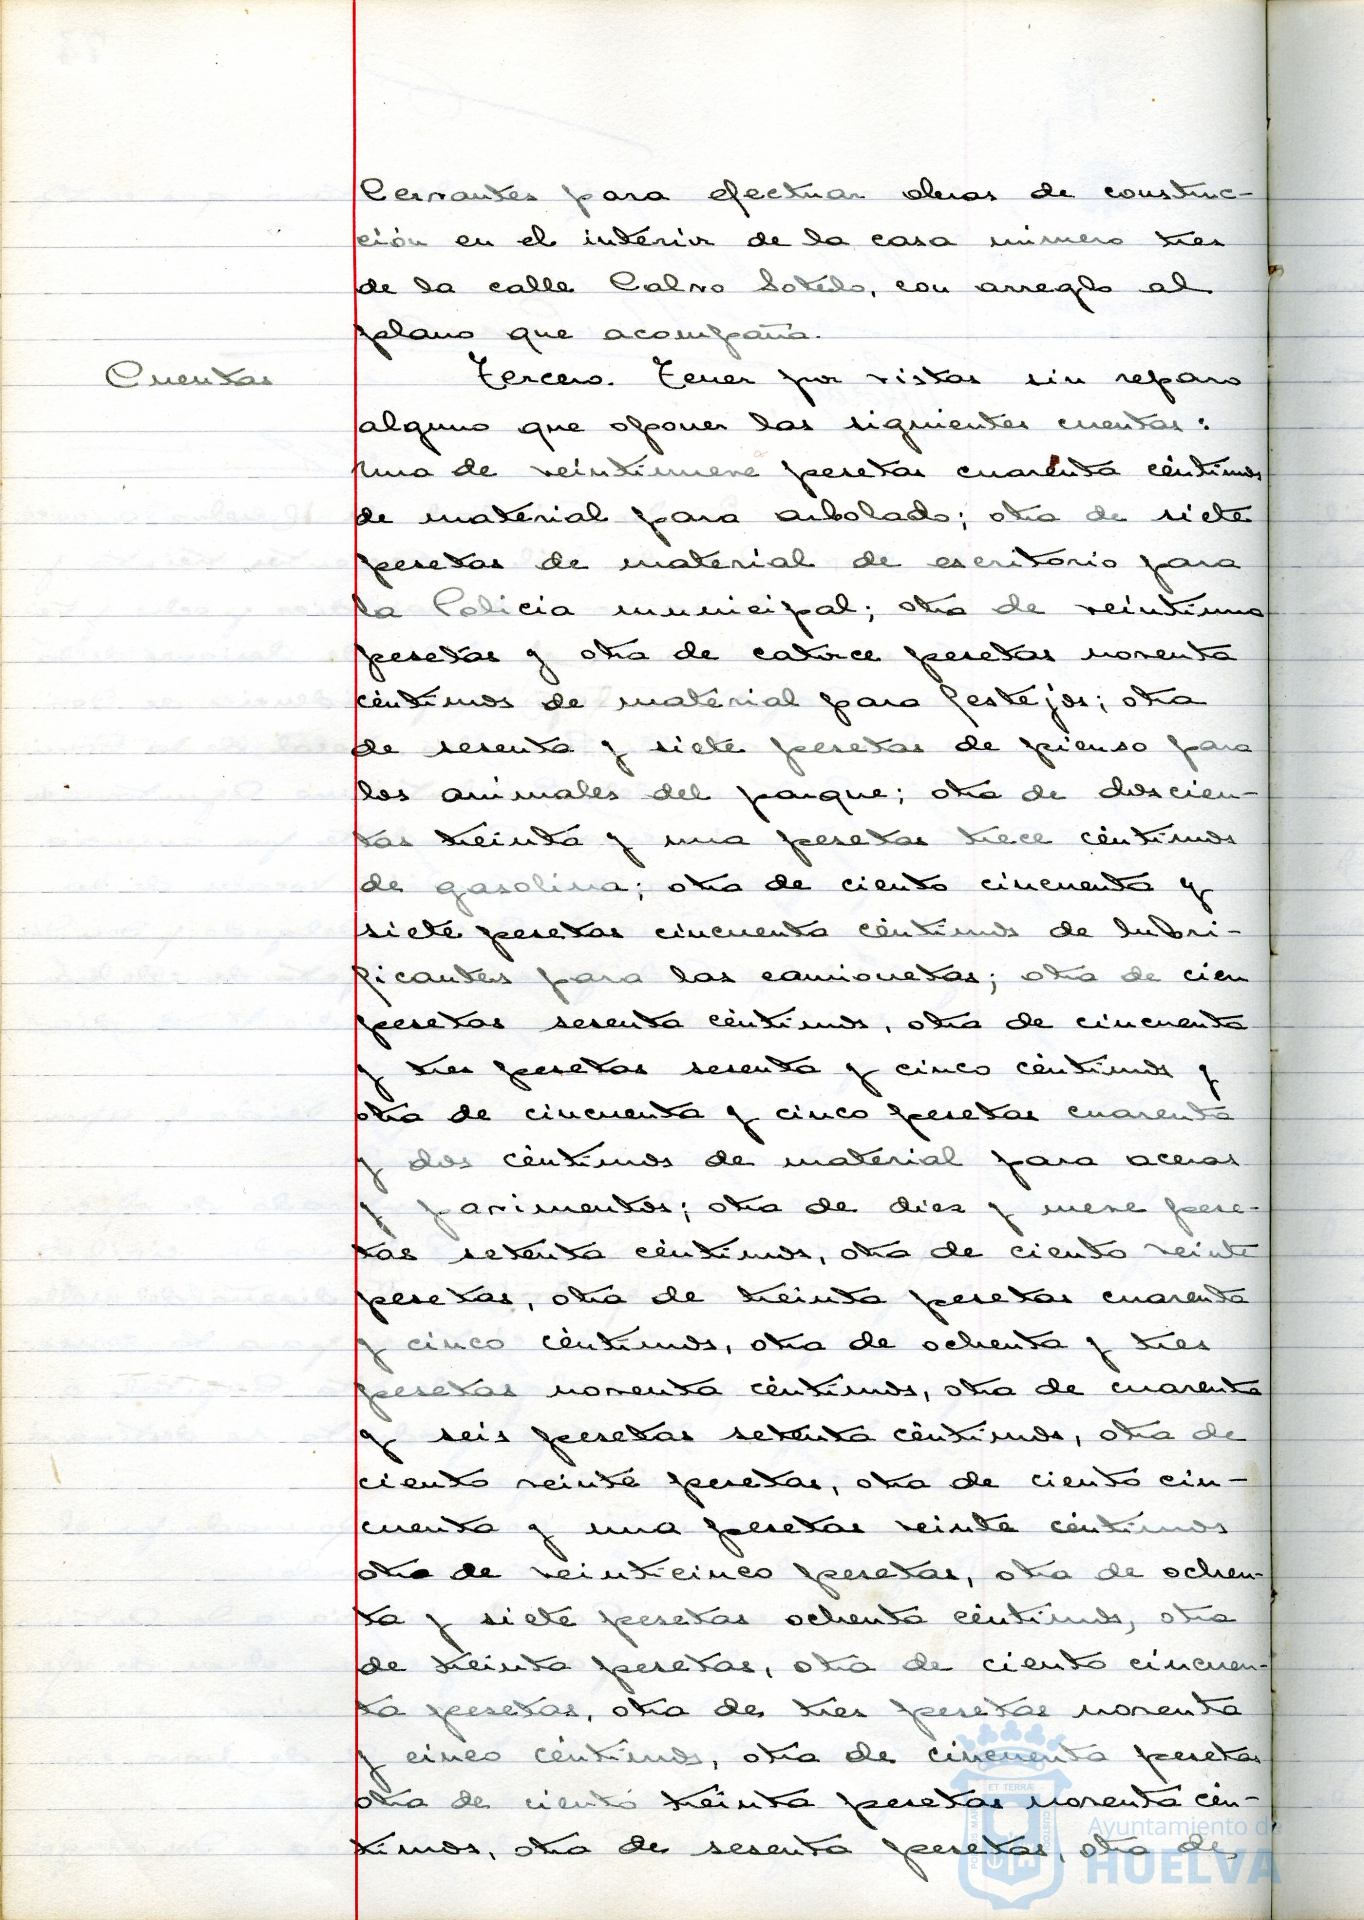 Cervantes para efectuar obras de construc-
ción en el interior de la casa número tres
de la calle Calvo Sotelo, con arreglo al
plano que acompaña.
Cuentas
Tercero. Tener por vistas sin reparo
alguno que oponer las siguientes cuentas:
una de veintinueve pesetas cuarenta céntimos
de material para arbolado; otra de siete
pesetas de material de escritorio para
la Policia municipal; otra de veintiuna
pesetas y otra de catorce pesetas noventa
céntimos de material para festejos; otra
de sesenta y siete pesetas de pienso para
los animales del parque; otra de doscien-
tas treinta y una pesetas trece céntimos
de gasolina; otra de ciento cincuenta y
siete pesetas cincuenta céntimos de lubri-
ficantes para las camionetas; otra de cien
pesetas sesenta céntimos, otra de cincuenta
y tres pesetas sesenta y cinco céntimos y
otra de cincuenta y cinco pesetas cuarenta
y dos céntimos de material para aceras
y pavimentos; otra de diez y nueve pese-
tas setenta céntimos, otra de ciento veinte
pesetas, otra de treinta pesetas cuarenta
y cinco céntimos, otra de ochenta y tres
pesetas noventa céntimos, otra de cuarenta
y seis pesetas setenta céntimos, otra de
ciento veinte pesetas, otra de ciento cin-
cuenta y una pesetas veinte céntimos
otra de veinticinco pesetas, otra de ochen-
ta y siete pesetas ochenta céntimos, otra
de treinta pesetas, otra de ciento cincuen-
ta pesetas, otra de tres pesetas noventa
y cinco céntimos, otra de cincuenta pesetas
otra de ciento treinta pesetas noventa cén-
timos, otra de sesenta pesetas, otra de
ET TERRÆ
Ayuntamiento de
HUELVA